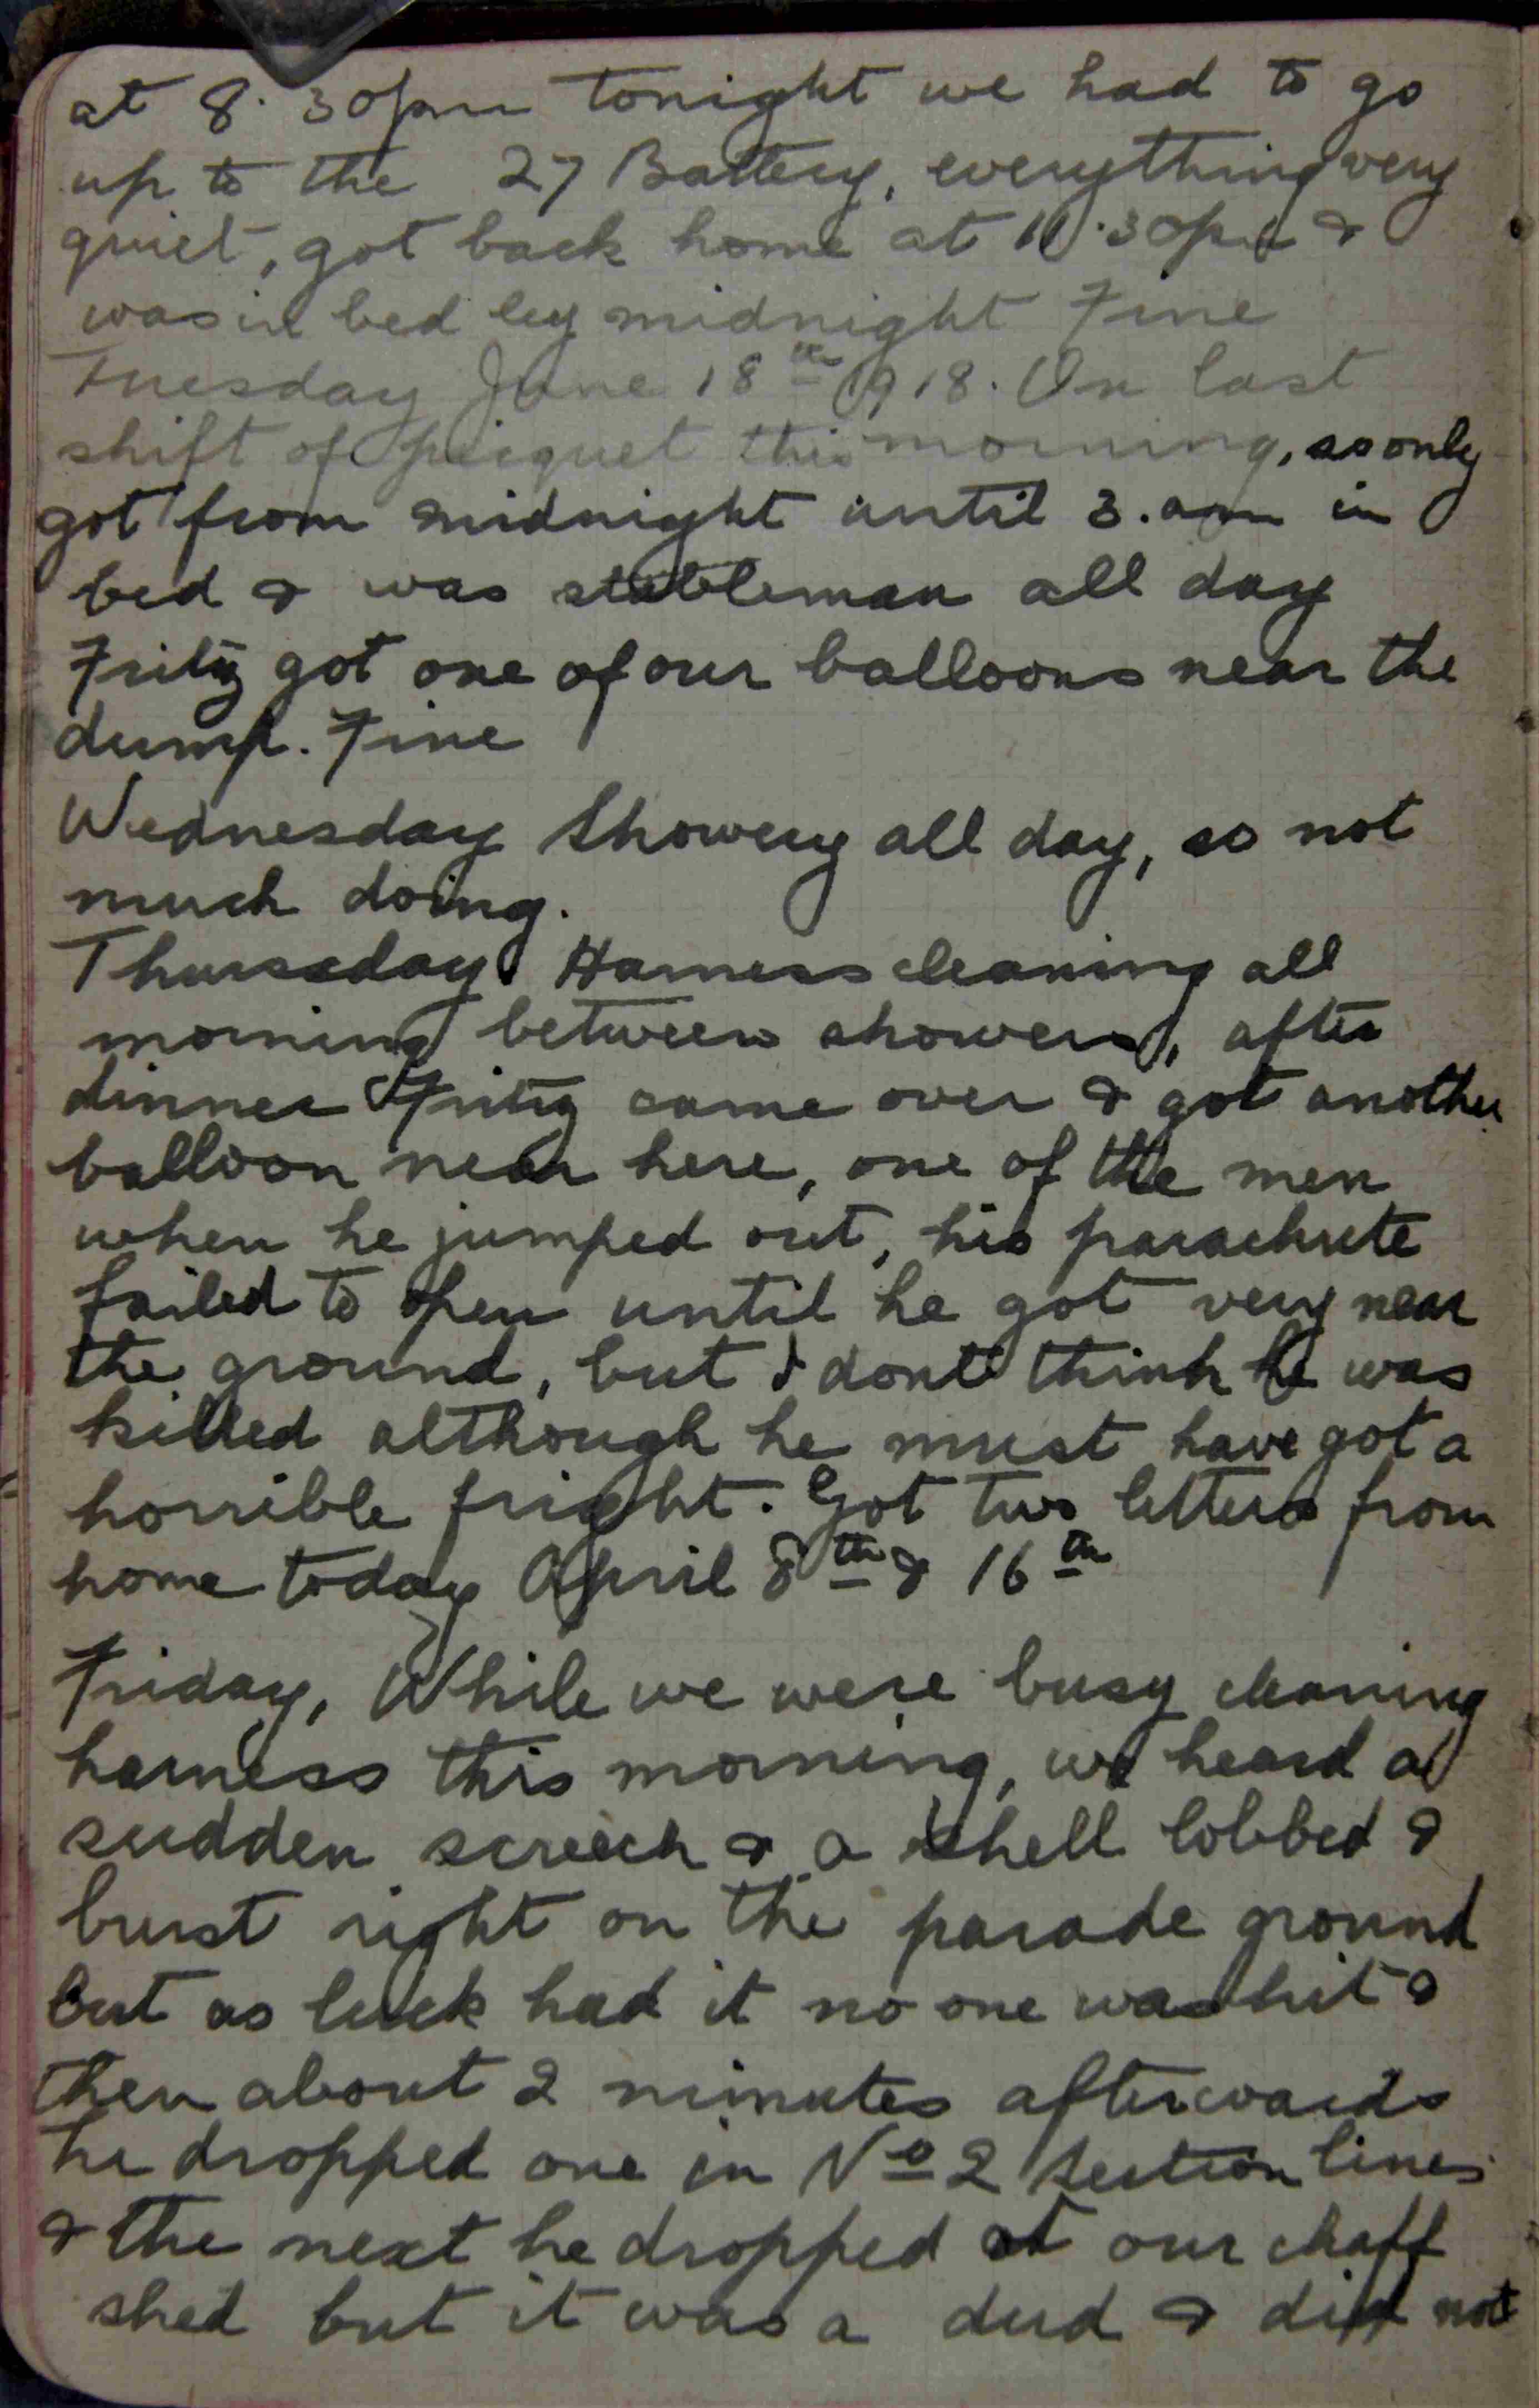 at 8.30pm tonight we had to go
up to the 27 Battery, everything very
quiet, got back home at 11.30pm &
was in bed by midnight Fine
Tuesday June 18th 1918. On last
shift of picquet this morning, so only
got from midnight until 3.am in
bed & was stableman all day
Fritz got one of our balloons near the
dump. Fine
Wednesday Showery all day, so not
much doing.
Thursday Harness cleaning all
morning between showers, after
dinner Fritz came over & got another
balloon near here, one of the men
when he jumped out, his parachute
failed to open until he got very near
the ground, but I dont think he was
killed although he must have got a
horrible fright. Got two letters from
home today April 8th & 16th
Friday, While we were busy cleaning
harness this morning, we heard a
sudden screech & a shell lobbed &
burst right on the parade ground
but as luck had it no one was hit &
then about 2 minutes afterwards
he dropped one in No 2 Section lines
& the next he dropped at our chaff
shed but it was a dud & did not